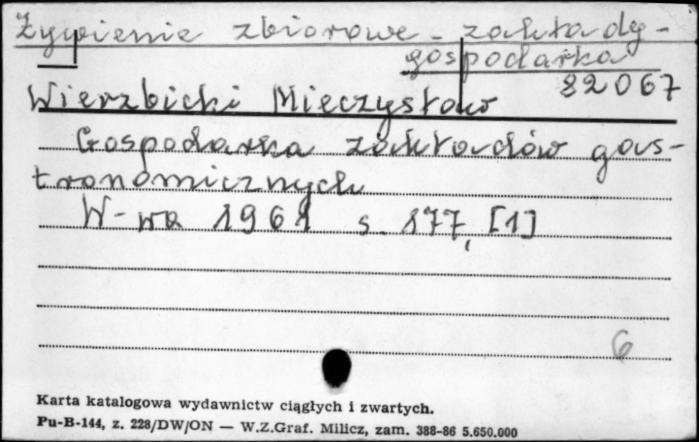 Żywienie zbiorowe - zakłady -
gospodarka
82067
Wierzbicki Mieczysław
Gospodarka zakładów gas-
tronomicznych
W-wa 1961 s. 177, [1]
6
Karta katalogowa wydawnictw ciągłych i zwartych.
Pu-B-144, z. 228/DW/ON — W.Z.Graf. Milicz, zam. 388-86 5.650.000